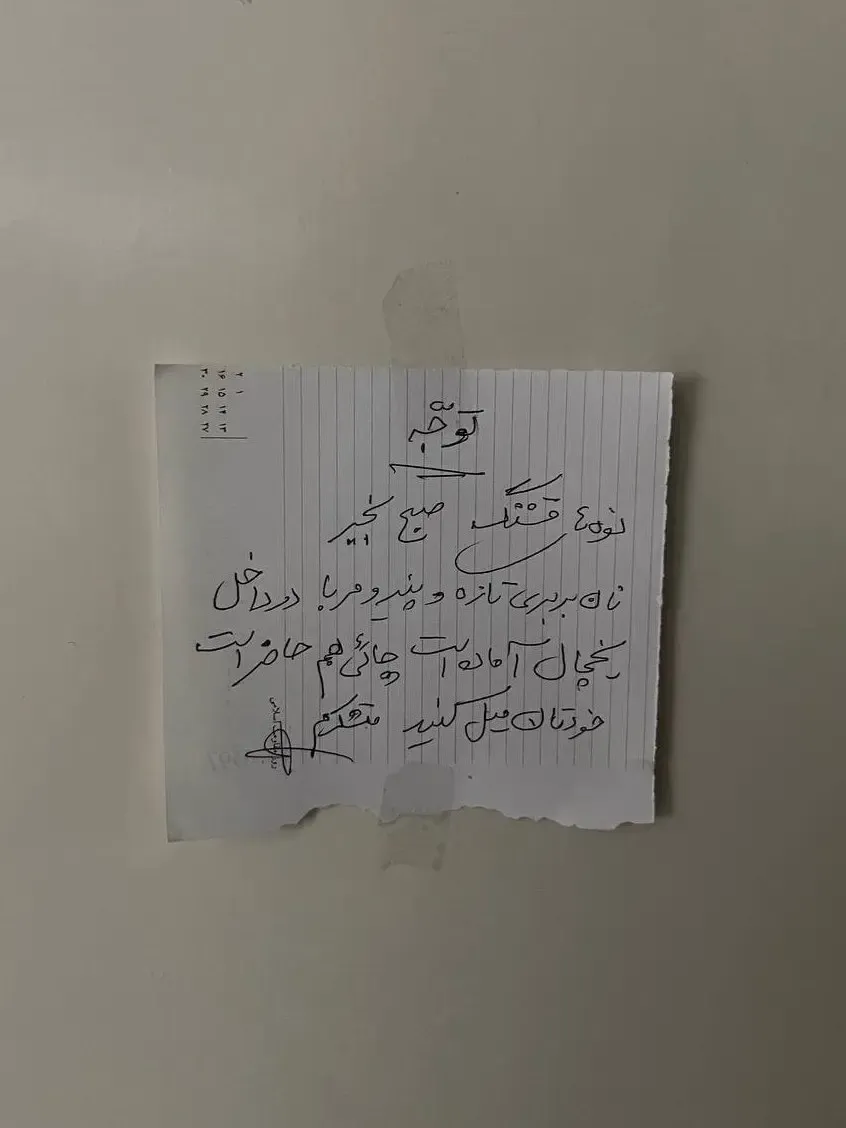 توجّه
نوه‌ها قشنگ صبح بخیر
نان بربری تازه و پنیر و مربا در داخل
یخچال آماده است چائی هم حاضر است
خودتان میل کنید متشکرم
۲ ۱
۱۶ ۱۵ ۱۴ ۱۳
۳۰ ۲۹ ۲۸ ۲۷